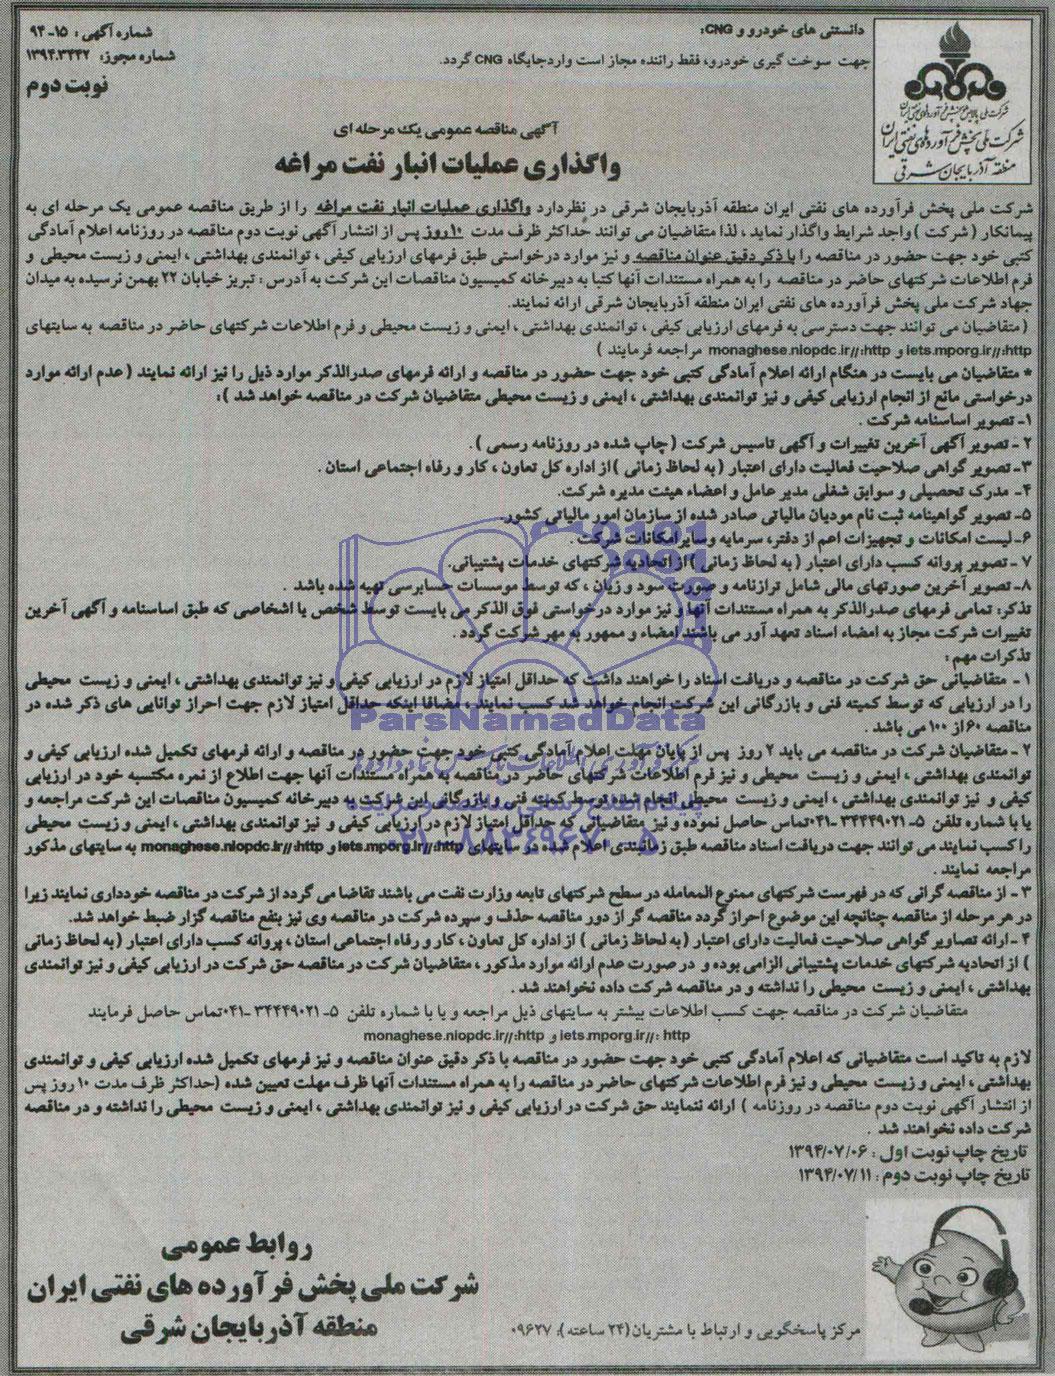 دانستنی های خودرو و CNG:
جهت سوخت گیری خودرو، فقط راننده مجاز است وارد جایگاه CNG گردد.
شماره آگهی: ۱۵-۹۴
شماره مجوز: ۱۳۹۴.۳۴۴۲
نوبت دوم
شرکت ملی پخش فرآورده های نفتی ایران
منطقه آذربایجان شرقی
آگهی مناقصه عمومی یک مرحله ای
واگذاری عملیات انبار نفت مراغه
شرکت ملی پخش فرآورده های نفتی ایران منطقه آذربایجان شرقی در نظردارد واگذاری عملیات انبار نفت مراغه را از طریق مناقصه عمومی یک مرحله ای به
پیمانکار ( شرکت ) واجد شرایط واگذار نماید ، لذا متقاضیان می توانند حداکثر ظرف مدت ۱۰روز پس از انتشار آگهی نوبت دوم مناقصه در روزنامه اعلام آمادگی
کتبی خود جهت حضور در مناقصه را با ذکر دقیق عنوان مناقصه و نیز موارد درخواستی طبق فرمهای ارزیابی کیفی ، توانمندی بهداشتی ، ایمنی و زیست محیطی و
فرم اطلاعات شرکتهای حاضر در مناقصه را به همراه مستندات آنها کتبا به دبیرخانه کمیسیون مناقصات این شرکت به آدرس : تبریز خیابان ۲۲ بهمن نرسیده به میدان
جهاد شرکت ملی پخش فرآورده های نفتی ایران منطقه آذربایجان شرقی ارائه نمایند.
( متقاضیان می توانند جهت دسترسی به فرمهای ارزیابی کیفی ، توانمندی بهداشتی ، ایمنی و زیست محیطی و فرم اطلاعات شرکتهای حاضر در مناقصه به سایتهای
http://iets.mporg.ir و http://monaghese.niopdc.ir مراجعه فرمایند )
* متقاضیان می بایست در هنگام ارائه اعلام آمادگی کتبی خود جهت حضور در مناقصه و ارائه فرمهای صدرالذکر موارد ذیل را نیز ارائه نمایند ( عدم ارائه موارد
درخواستی مانع از انجام ارزیابی کیفی و نیز توانمندی بهداشتی ، ایمنی و زیست محیطی متقاضیان شرکت در مناقصه خواهد شد ):
۱- تصویر اساسنامه شرکت .
۲ - تصویر آگهی آخرین تغییرات و آگهی تاسیس شرکت ( چاپ شده در روزنامه رسمی ) .
۳- تصویر گواهی صلاحیت فعالیت دارای اعتبار ( به لحاظ زمانی ) از اداره کل تعاون ، کار و رفاه اجتماعی استان .
۴- مدرک تحصیلی و سوابق شغلی مدیر عامل و اعضاء هیئت مدیره شرکت.
۵- تصویر گواهینامه ثبت نام مودیان مالیاتی صادر شده از سازمان امور مالیاتی کشور.
۶- لیست امکانات و تجهیزات اعم از دفتر، سرمایه وسایر امکانات شرکت .
۷ - تصویر پروانه کسب دارای اعتبار ( به لحاظ زمانی ) از اتحادیه شرکتهای خدمات پشتیبانی.
۸- تصویر آخرین صورتهای مالی شامل ترازنامه و صورت سود و زیان ، که توسط موسسات حسابرسی تهیه شده باشد .
تذکر: تمامی فرمهای صدرالذکر به همراه مستندات آنها و نیز موارد درخواستی فوق الذکر می بایست توسط شخص یا اشخاصی که طبق اساسنامه و آگهی آخرین
تغییرات شرکت مجاز به امضاء اسناد تعهد آور می باشند امضاء و ممهور به مهر شرکت گردد .
تذکرات مهم :
۱ - متقاضیانی حق شرکت در مناقصه و دریافت اسناد را خواهند داشت که حداقل امتیاز لازم در ارزیابی کیفی و نیز توانمندی بهداشتی ، ایمنی و زیست محیطی
را در ارزیابی که توسط کمیته فنی و بازرگانی این شرکت انجام خواهد شد کسب نمایند ، مضافا اینکه حداقل امتیاز لازم جهت احراز توانایی های ذکر شده در
مناقصه ۶۰ از ۱۰۰ می باشد .
۲ - متقاضیان شرکت در مناقصه می باید ۷ روز پس از پایان مهلت اعلام آمادگی کتبی خود جهت حضور در مناقصه و ارائه فرمهای تکمیل شده ارزیابی کیفی و
توانمندی بهداشتی ، ایمنی و زیست محیطی و نیز فرم اطلاعات شرکتهای حاضر در مناقصه به همراه مستندات آنها جهت اطلاع از نمره مکتسبه خود در ارزیابی
کیفی و نیز توانمندی بهداشتی ، ایمنی و زیست محیطی انجام شده توسط کمیته فنی و بازرگانی این شرکت به دبیرخانه کمیسیون مناقصات این شرکت مراجعه و
یا با شماره تلفن ۵-۳۴۴۴۹۰۲۱-۰۴۱ تماس حاصل نموده و نیز متقاضیانی که حداقل امتیاز لازم در ارزیابی کیفی و نیز توانمندی بهداشتی ، ایمنی و زیست محیطی
را کسب نمایند می توانند جهت دریافت اسناد مناقصه طبق زمانبندی اعلام شده در سایتهای http://iets.mporg.ir و http://monaghese.niopdc.ir به سایتهای مذکور
مراجعه نمایند .
۳ - از مناقصه گرانی که در فهرست شرکتهای ممنوع المعامله در سطح شرکتهای تابعه وزارت نفت می باشند تقاضا می گردد از شرکت در مناقصه خودداری نمایند زیرا
در هر مرحله از مناقصه چنانچه این موضوع احراز گردد مناقصه گر از دور مناقصه حذف و سپرده شرکت در مناقصه وی نیز بنفع مناقصه گزار ضبط خواهد شد.
۴ - ارائه تصاویر گواهی صلاحیت فعالیت دارای اعتبار ( به لحاظ زمانی ) از اداره کل تعاون ، کار و رفاه اجتماعی استان ، پروانه کسب دارای اعتبار ( به لحاظ زمانی
) از اتحادیه شرکتهای خدمات پشتیبانی الزامی بوده و در صورت عدم ارائه موارد مذکور ، متقاضیان شرکت در مناقصه حق شرکت در ارزیابی کیفی و نیز توانمندی
بهداشتی ، ایمنی و زیست محیطی را نداشته و در مناقصه شرکت داده نخواهند شد .
متقاضیان شرکت در مناقصه جهت کسب اطلاعات بیشتر به سایتهای ذیل مراجعه و یا با شماره تلفن ۵-۳۴۴۴۹۰۲۱-۰۴۱ تماس حاصل فرمایند
http ://iets.mporg.ir و http://monaghese.niopdc.ir
لازم به تاکید است متقاضیانی که اعلام آمادگی کتبی خود جهت حضور در مناقصه با ذکر دقیق عنوان مناقصه و نیز فرمهای تکمیل شده ارزیابی کیفی و توانمندی
بهداشتی ، ایمنی و زیست محیطی و نیز فرم اطلاعات شرکتهای حاضر در مناقصه را به همراه مستندات آنها ظرف مهلت تعیین شده (حداکثر ظرف مدت ۱۰ روز پس
از انتشار آگهی نوبت دوم مناقصه در روزنامه ) ارائه ننمایند حق شرکت در ارزیابی کیفی و نیز توانمندی بهداشتی ، ایمنی و زیست محیطی را نداشته و در مناقصه
شرکت داده نخواهند شد .
تاریخ چاپ نوبت اول : ۱۳۹۴/۰۷/۰۶
تاریخ چاپ نوبت دوم : ۱۳۹۴/۰۷/۱۱
روابط عمومی
شرکت ملی پخش فرآورده های نفتی ایران
منطقه آذربایجان شرقی
مرکز پاسخگویی و ارتباط با مشتریان (۲۴ ساعته ): ۰۹۶۲۷
ParsNamadData